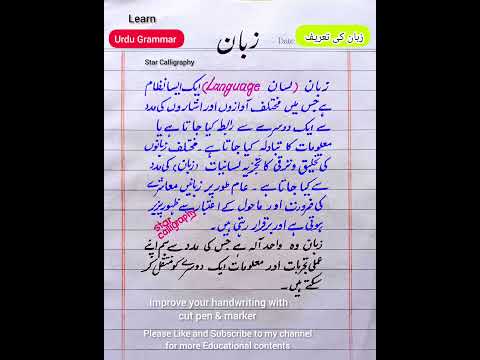 Learn
Urdu Grammar
زبان
Date:
زبان کی تعریف
Star Calligraphy
زبان (لسان Language) ایک ایسا نظام
ہے جس میں مختلف آوازوں اور اشاروں کی مدد
سے ایک دوسرے سے رابطہ کیا جاتا ہے یا
معلومات کا تبادلہ کیا جاتا ہے۔ مختلف زبانوں
کی تخلیق و ترقی کا تجزیہ لسانیات (زبان) کی مدد
سے کیا جاتا ہے۔ عام طور پر زبانیں معاشرے
کی ضرورت اور ماحول کے اعتبار سے ظہور پزیر
ہوتی ہے اور برقرار رہتی ہیں۔
Star calligraphy
زبان وہ واحد آلہ ہے جس کی مدد سے ہم اپنے
عملی تجربات اور معلومات ایک دوسرے کو منتقل کر
سکتے ہیں۔
Improve your handwriting with
cut pen & marker
Please Like and Subscribe to my channel
for more Educational contents